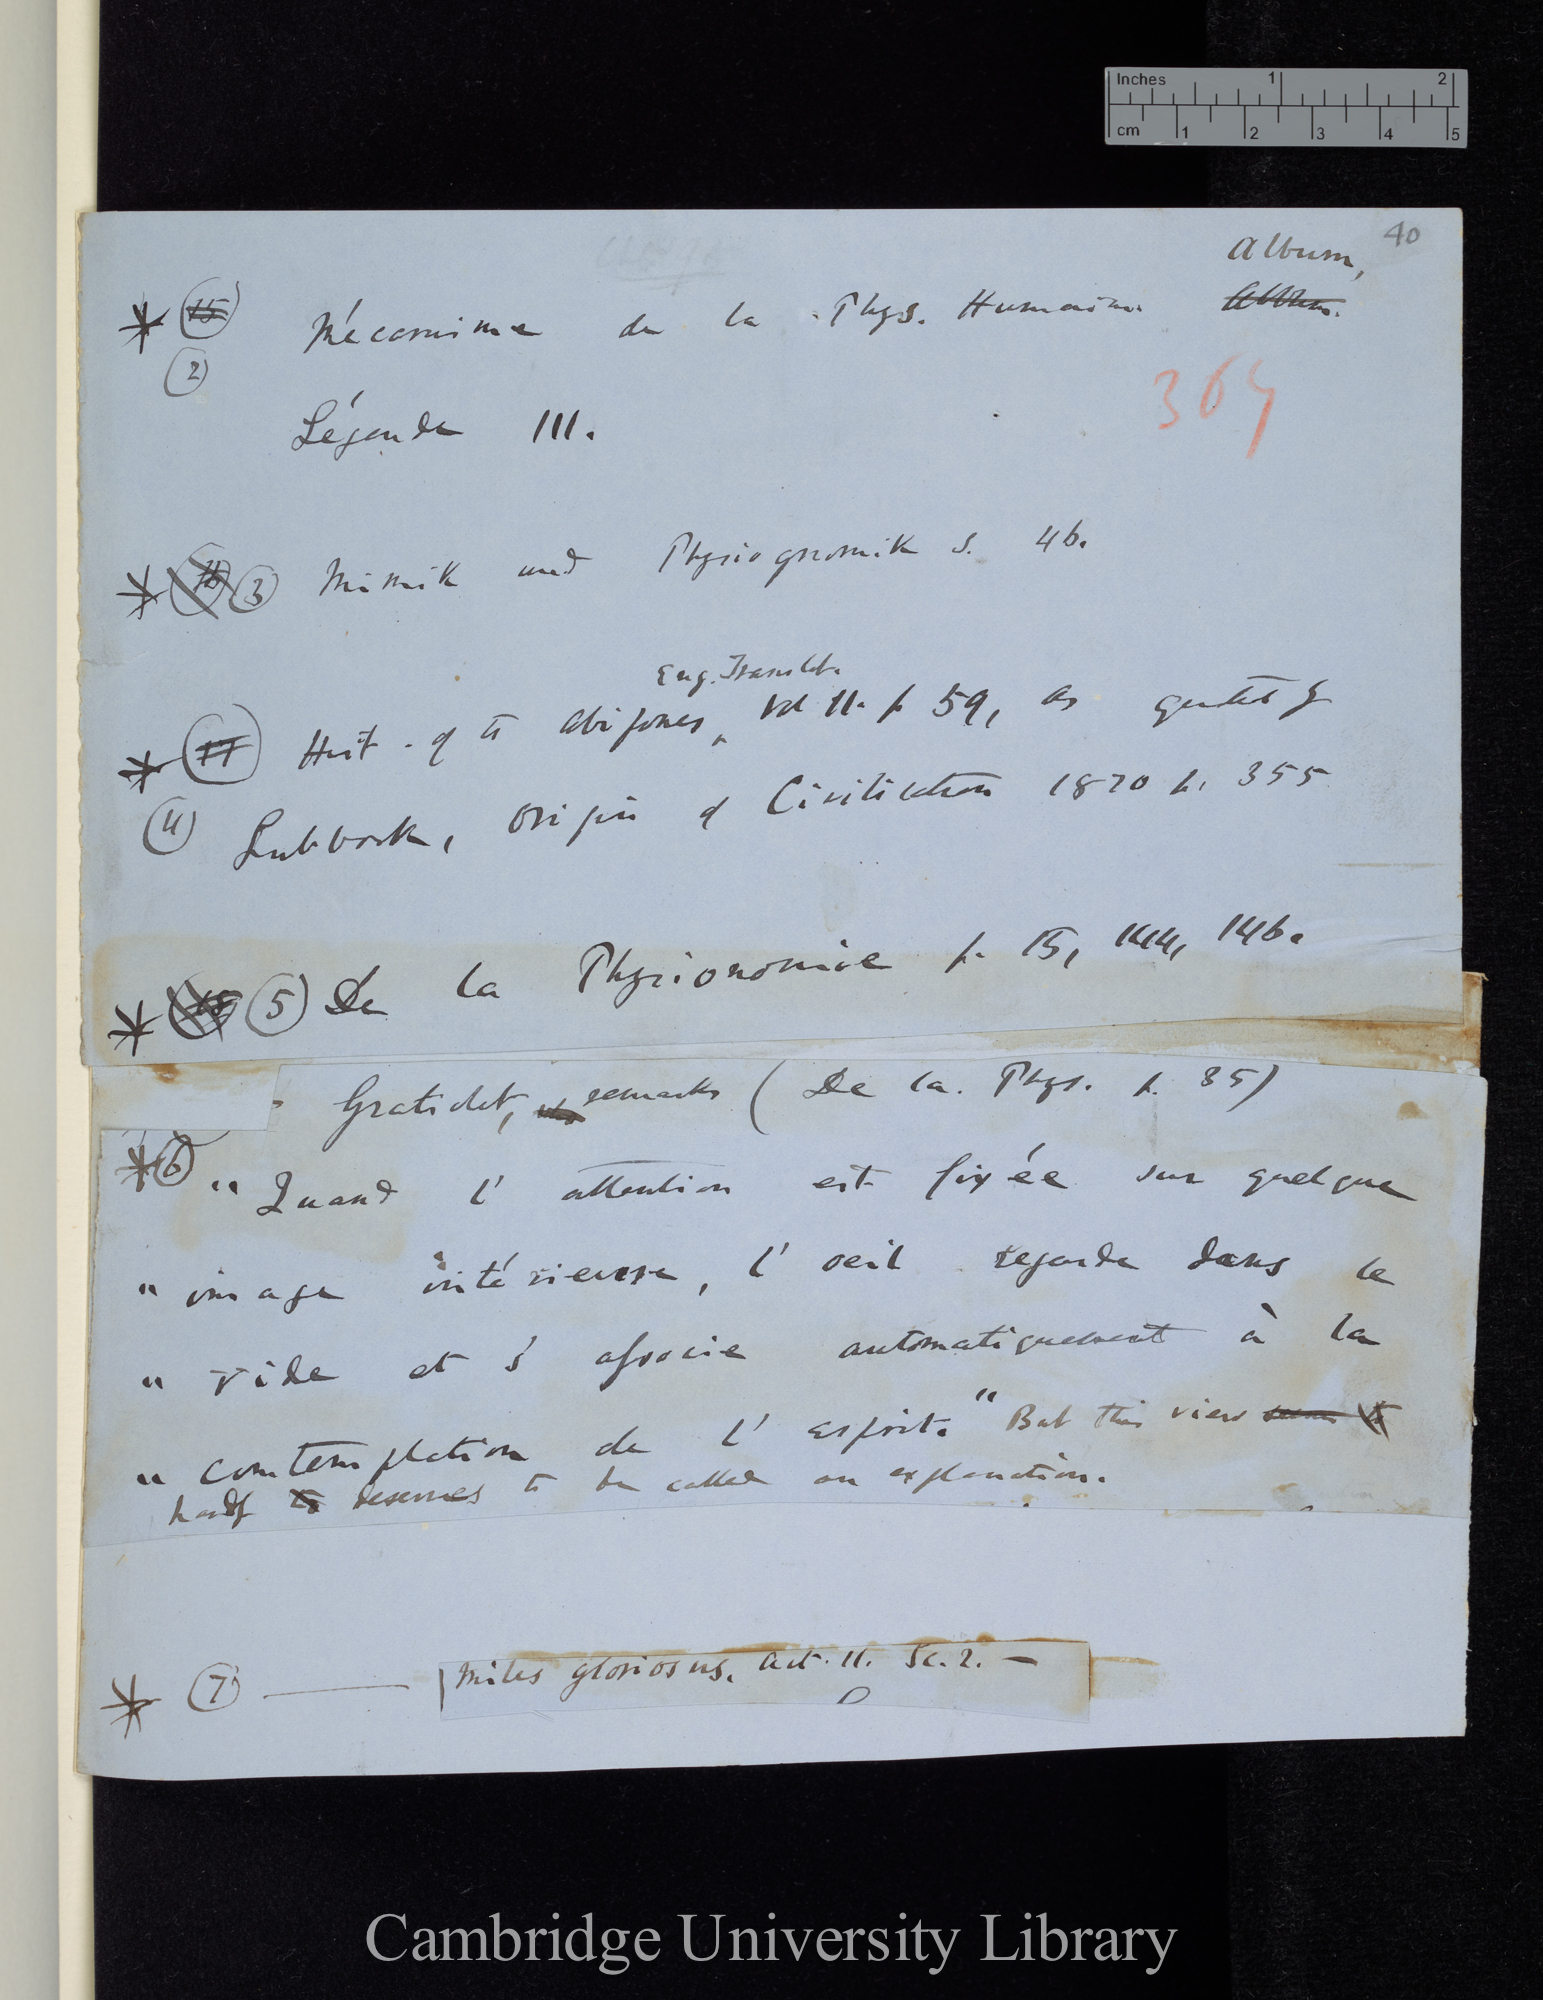 Inches 1 2
cm 1 2 3 4 5
40
Album,
* 15 Mécanisme de la Phys. Humaine. Album.
2
364
Légende III.
* 16 3 Mimik und Physiognomik s. 46.
Eng. Translat.
* 17 Hist. of the Abipones, vol II. p 59, as quoted by
4 Lubbock, Origin of Civilisation 1870 p. 355
* 18 5 De la Physionomie p. 15, 144, 146.
Gratiolet, remarks (De la. Phys. p. 35)
* 6 " Quand l' attention est fixée sur quelque
" image intérieure, l' oeil regarde dans le
" vide et s' associe automatiquement à la
" contemplation de l' esprit." But this view seems to
hardly to deserves to be called an explanation.
* 7 Miles gloriosus. act. II. Sc. 2. —
Cambridge University Library